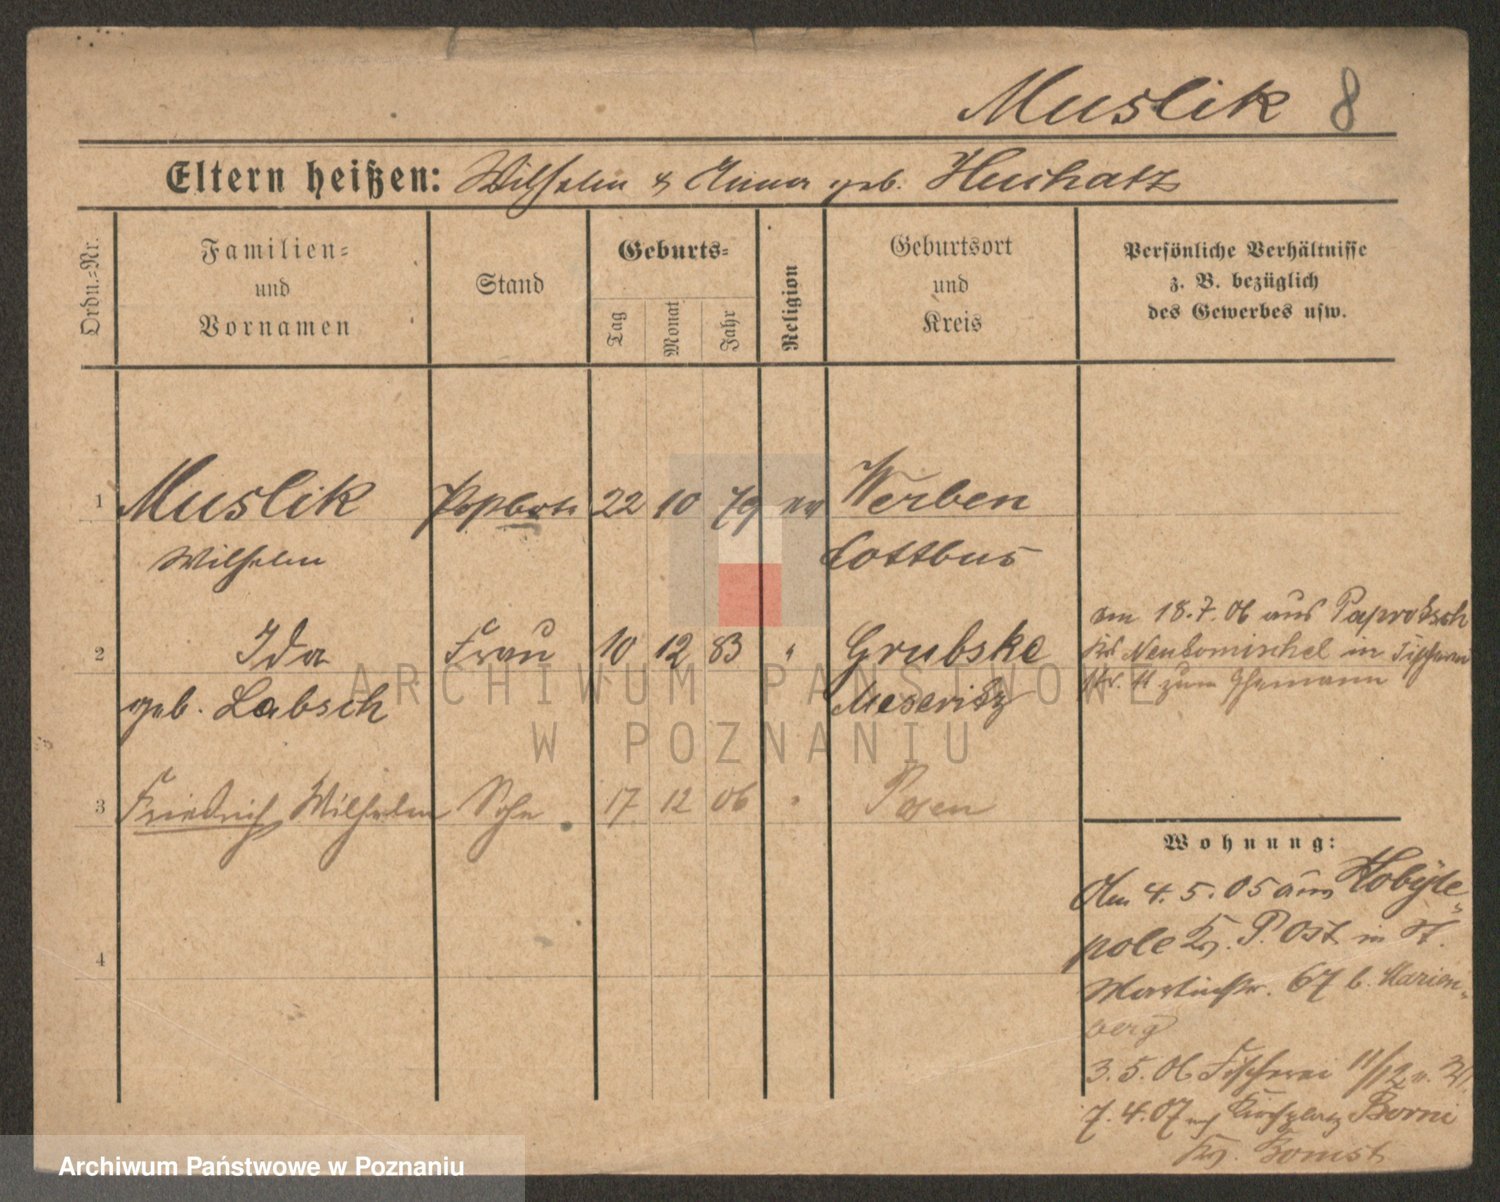 Muslik 8
Eltern heißen: Wilhelm & Anna geb.
Ordn.-Nr.
Familien-
und
Vornamen
Stand
Geburts-
Tag
Monat
Jahr
Religion
Geburtsort
und
Kreis
Persönliche Verhältnisse
z. B. bezüglich
des Gewerbes usw.
1 Muslik 22 10 79 ev Werben
Wilhelm Cottbus
2 Ida Frau 10 12 83 " Grubske
geb. Labsch Meseritz
am 18.7.06 aus Paprotsch
Krs Neutomischel in Fischerei
Nr. 11 zum Ehemann
3 Friedrich Wilhelm Sohn 17 12 06 " Posen
4
Wohnung:
Am 4.5.05 aus Kobyle-
pole Kr. P. Ost in St.
Martinstr. 67 b. Marien-
berg
3.5.06 Fischerei 11/12
7.4.07 Kirchplatz Borui
Kr. Bomst
ARCHIWUM PAŃSTWOWE
W POZNANIU
Archiwum Państwowe w Poznaniu